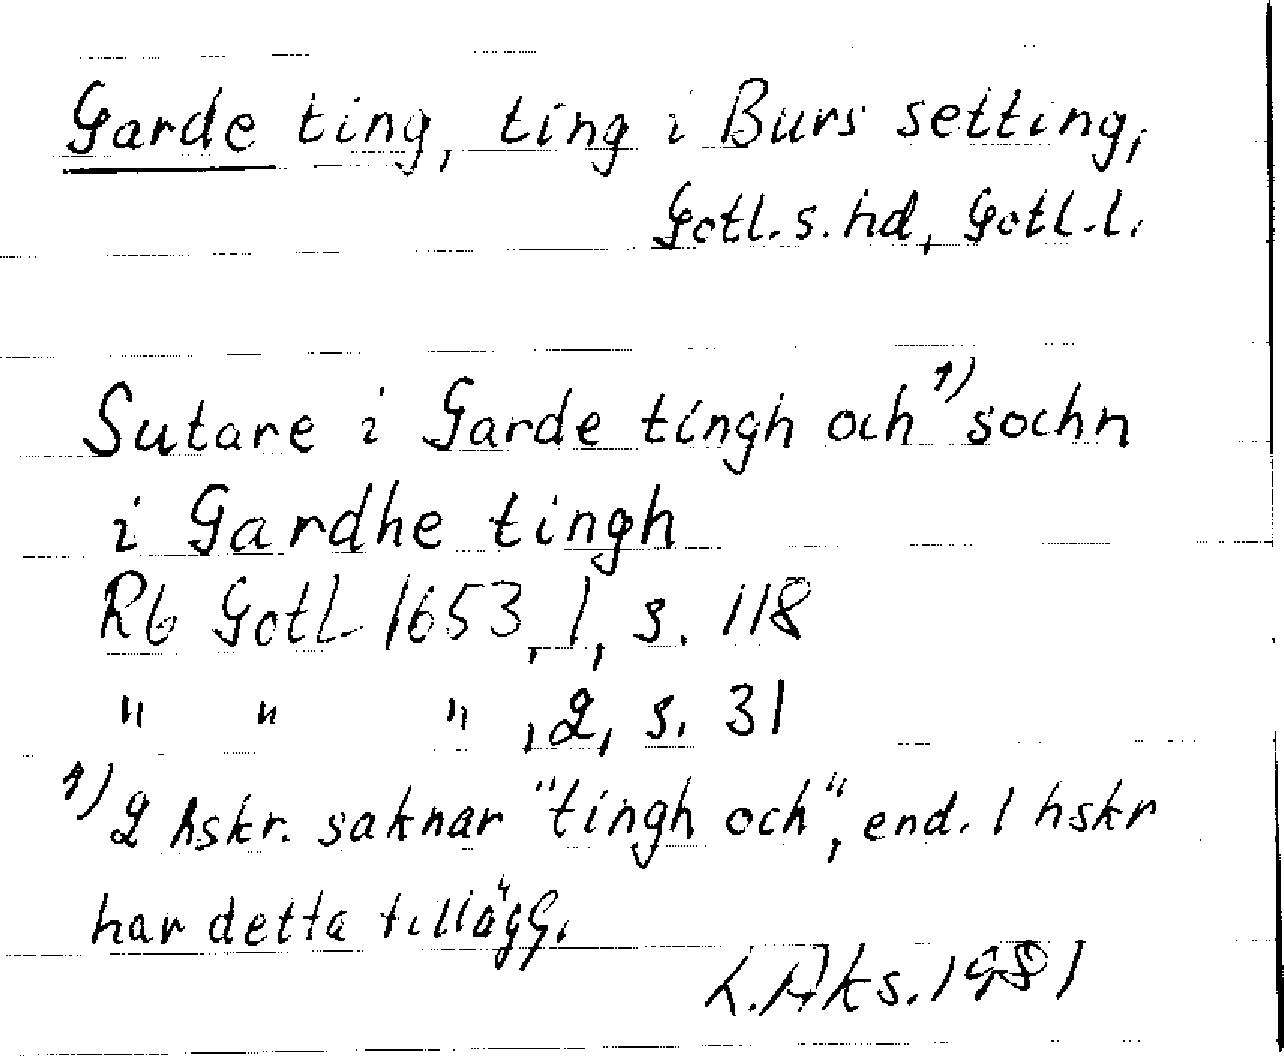 Garde ting, ting i Burs setting,
Gotl. s. hd, Gotl. l.
Sutare i Garde tingh och ¹) sochn
i Gardhe tingh
Rb Gotl 1653, 1, s. 118
" " " , 2, s. 31
¹) 2 hskr. saknar "tingh och", end. 1 hskr
har detta tillägg.
L. Aks. 1981